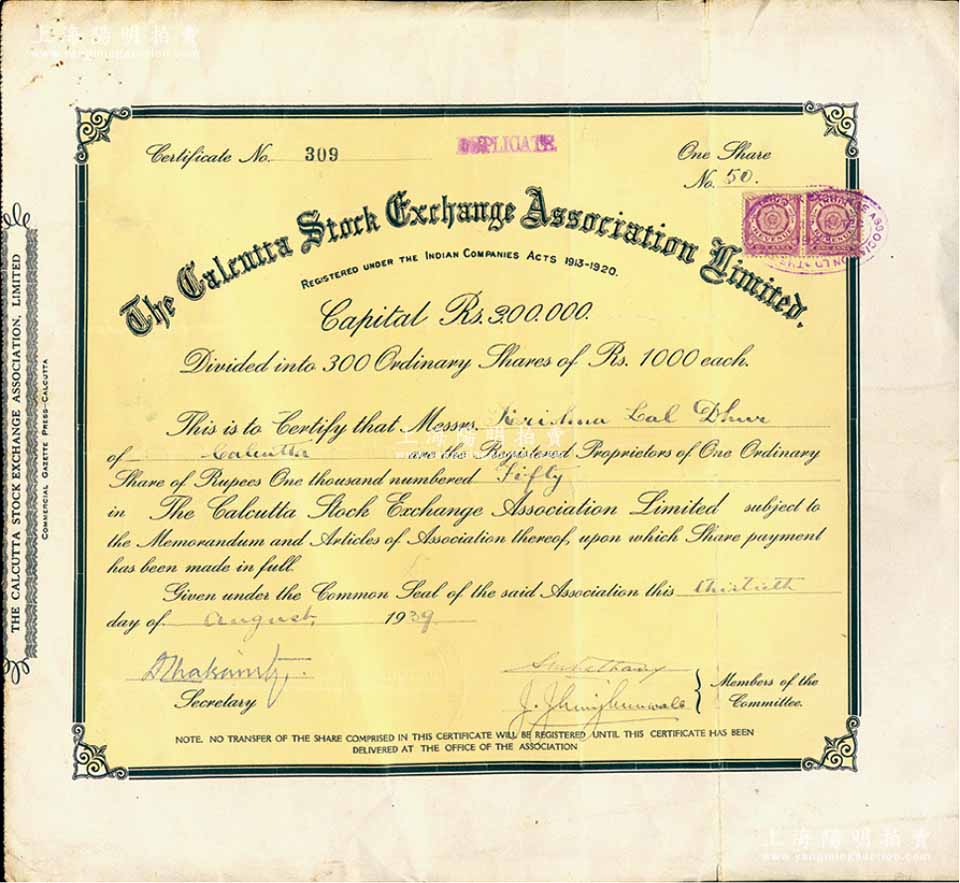 上海陽明拍賣
www.yangmingauction.com
Certificate No. 309
DUPLICATE.
One Share
No. 50.
The Calcutta Stock Exchange Association Limited.
REGISTERED UNDER THE INDIAN COMPANIES ACTS 1913-1920.
Capital Rs. 300.000.
Divided into 300 Ordinary Shares of Rs. 1000 each.
This is to Certify that Messrs. Krishna Lal Dhur
of Calcutta are the Registered Proprietors of One Ordinary
Share of Rupees One thousand numbered Fifty
in The Calcutta Stock Exchange Association Limited subject to
the Memorandum and Articles of Association thereof, upon which Share payment
has been made in full.
Given under the Common Seal of the said Association this thirtieth
day of August, 1939
Secretary
J. Jhunjhunwala
Members of the
Committee.
NOTE. NO TRANSFER OF THE SHARE COMPRISED IN THIS CERTIFICATE WILL BE REGISTERED UNTIL THIS CERTIFICATE HAS BEEN
DELIVERED AT THE OFFICE OF THE ASSOCIATION
THE CALCUTTA STOCK EXCHANGE ASSOCIATION, LIMITED
COMMERCIAL GAZETTE PRESS-CALCUTTA
上海陽明拍賣
www.yangmingauction.com
上海陽明拍賣
www.yangmingauction.com